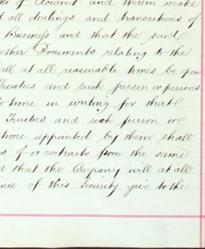 of Account and therein make
all dealings and transactions of
Business and that the said
other Documents relating to the
all at all reasonable times be
Trustees and such person or persons
to time in writing for that
Trustees and such person or
appointed by them shall
of or contracts from the same
that the Company will at all
of this Security give to the